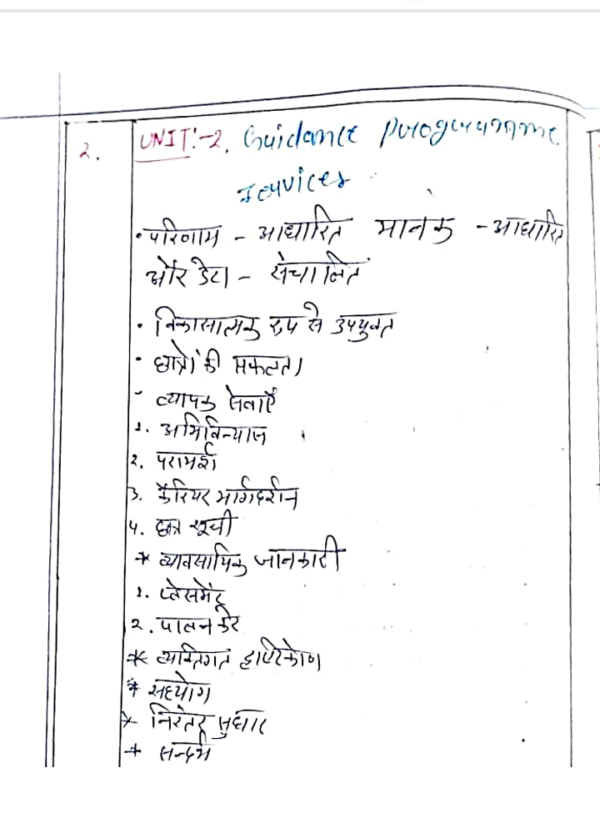 2. UNIT:-2. Guidance Programme
Services
• परिणाम - आधारित मानक - आधारित
और डेटा - संचालित
• विकासात्मक रूप से उपयुक्त
• छात्रों की सफलता
- व्यापक सेवाएँ
1. अभिविन्यास
2. परामर्श
3. कैरियर मार्गदर्शन
4. छात्र सूची
* व्यावसायिक जानकारी
1. प्लेसमेंट
2. पालन करें
* व्यक्तिगत दृष्टिकोण
* सहयोग
* निरंतर सुधार
* सन्दर्भ